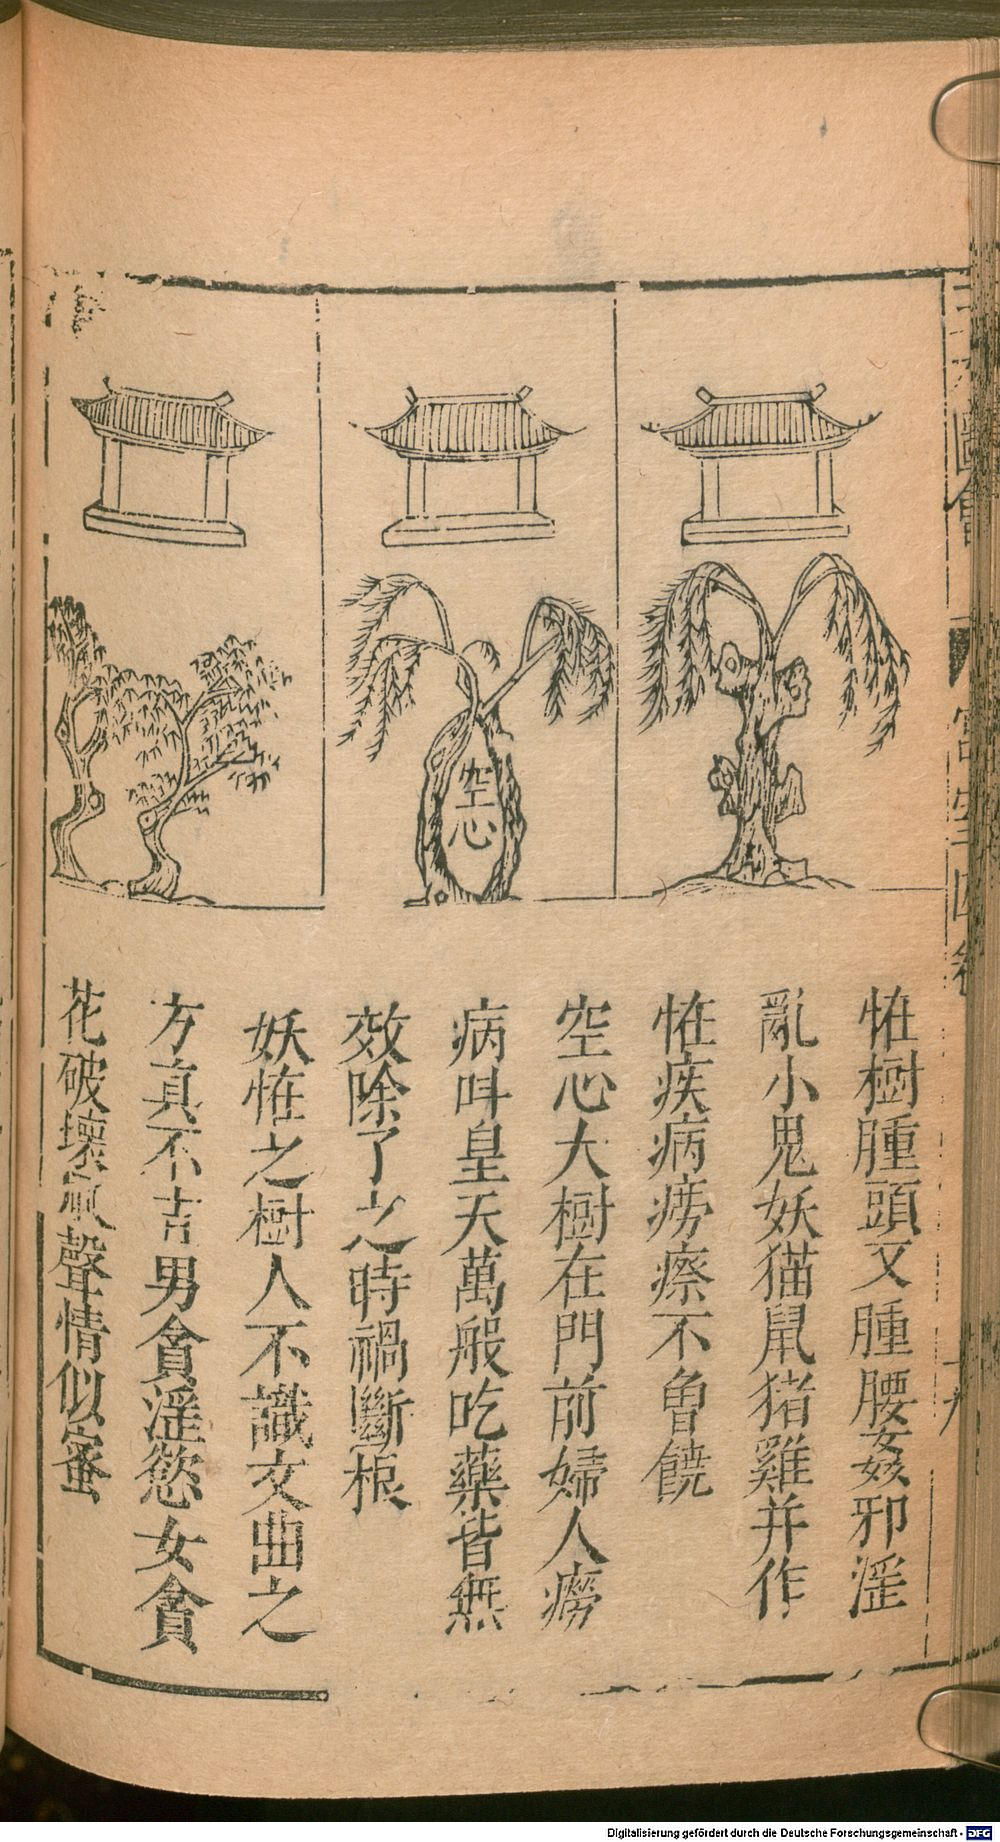 空心
恠樹腫頭又腫腰姦邪淫
亂小鬼妖猫鼠猪雞并作
恠疾病癆瘵不曽饒
空心大樹在門前婦人癆
病呌皇天萬般吃藥皆無
效除了之時禍斷根
妖恠之樹人不識文曲之
方真不吉男貪淫慾女貪
花破壞風聲情似蜜
Digitalisierung gefördert durch die Deutsche Forschungsgemeinschaft - DFG